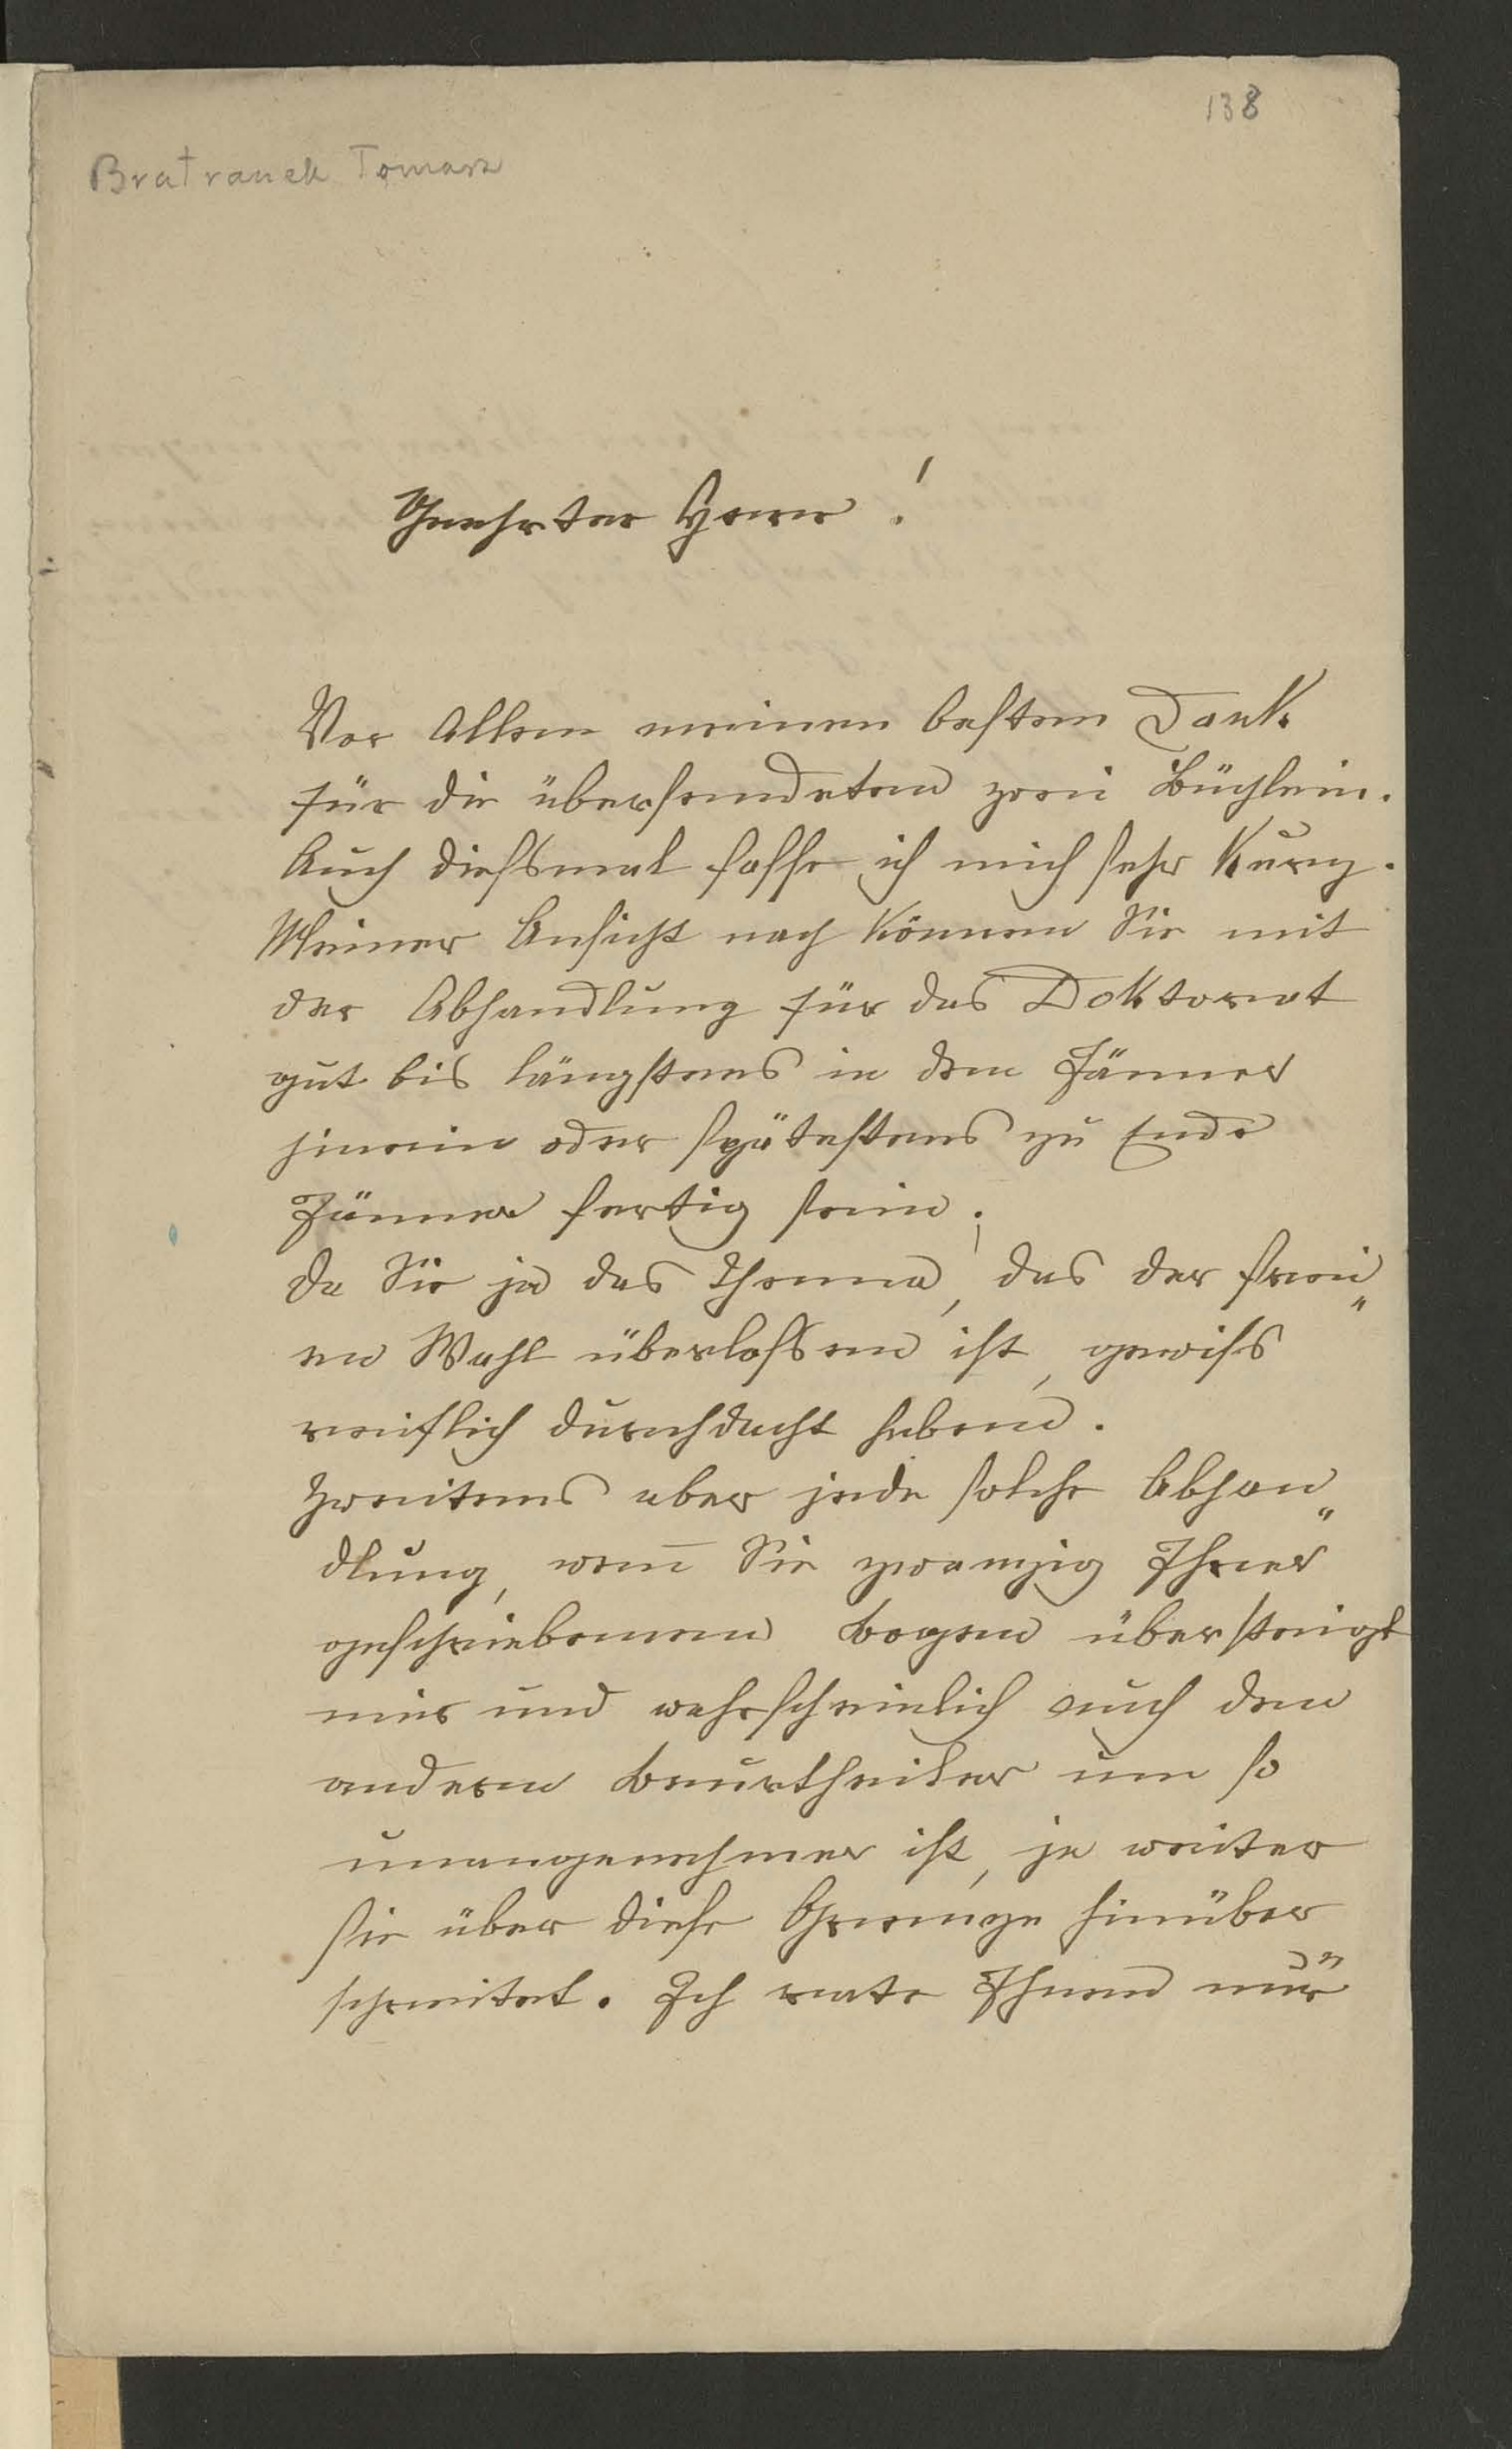 138
Bratranek Tomasz
Geehrter Herr!
Vor Allem meinen besten Dank
für die übersendeten zwei Büchlein.
Auch diesmal fasse ich mich sehr kurz.
Meiner Ansicht nach können Sie mit
der Abhandlung für das Doktorat
gut bis längstens in den Jänner
hinein oder spätestens zu Ende
Jänner fertig sein;
da Sie ja das Thema, das der frei„
en Wahl überlassen ist, gewiss
reiflich durchdacht haben.
Zweitens aber jede solche Abhan„
dlung, wen̄ Sie zwanzig Ihrer
geschriebenen Bogen übersteigt
mir und wahrscheinlich auch den
andern Beurtheiler um so
unangenehmer ist, je weiter
sie über diese Grenze hinüber
schreitet. Ich rate Ihnen nur